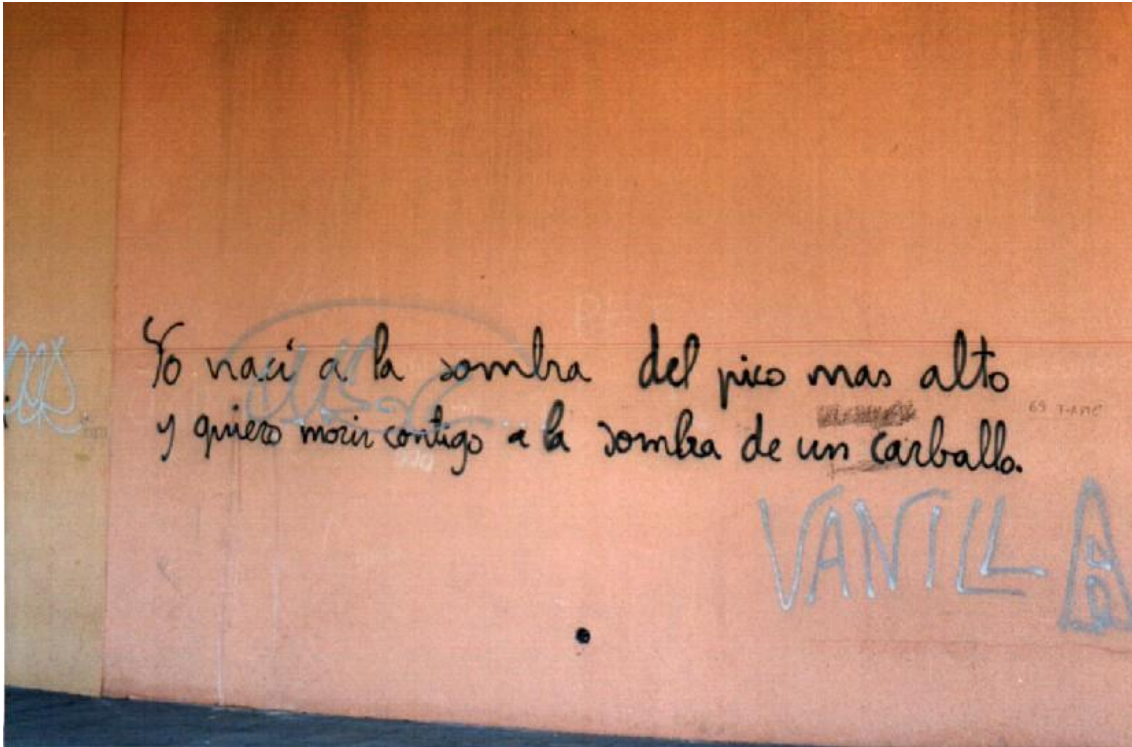 Yo nací a la sombra del pico mas alto
y quiero morir contigo a la sombra de un carballo.
VANILLA